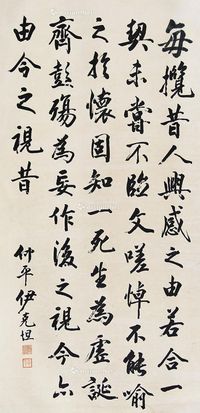 每攬昔人興感之由若合一
契未嘗不臨文嗟悼不能喻
之於懷固知一死生為虛誕
齊彭殤為妄作後之視今亦
由今之視昔
付平伊克坦